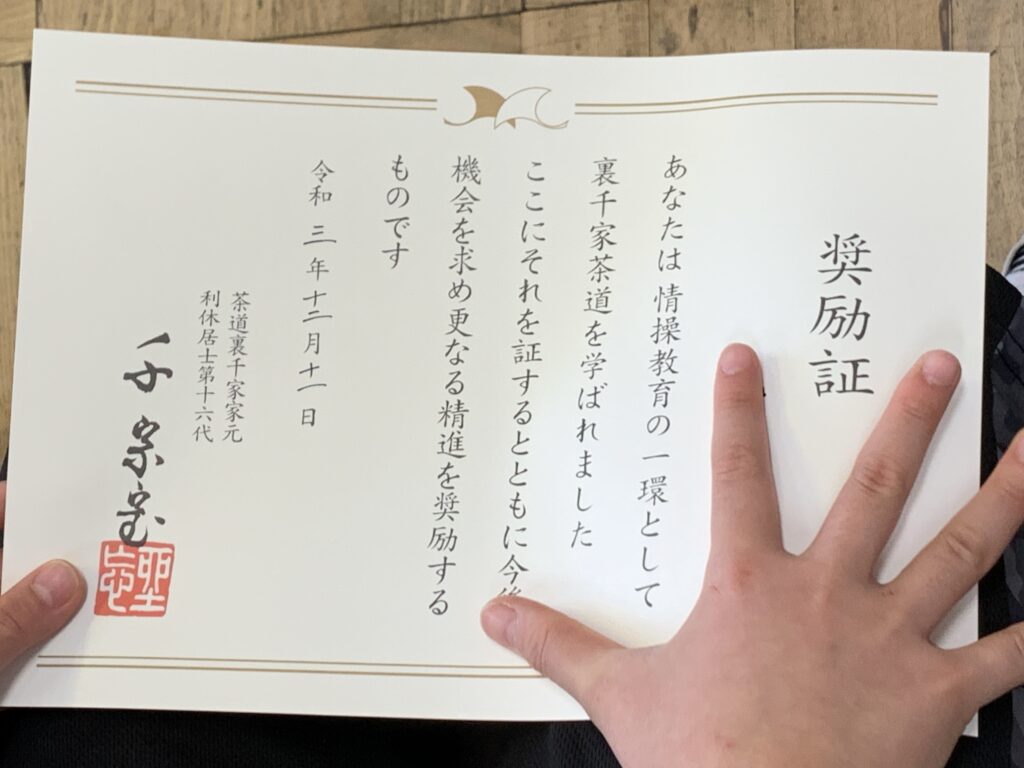 奨励証
あなたは情操教育の一環として
裏千家茶道を学ばれました
ここにそれを証するとともに今後
機会を求め更なる精進を奨励する
ものです
令和三年十二月十一日
茶道裏千家家元
利休居士第十六代
千宗室